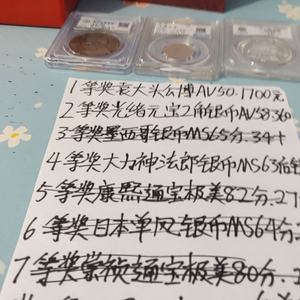 1等奖袁大头公博AU50.1700元
2等奖光绪元宝2角银币AU58.360
3等奖墨西哥银币MS65分.34
4等奖大力神法郎银币MS63
5等奖康熙通宝极美82分.27
6等奖日本单凤银币MS64分
7等奖崇祯通宝极美80分